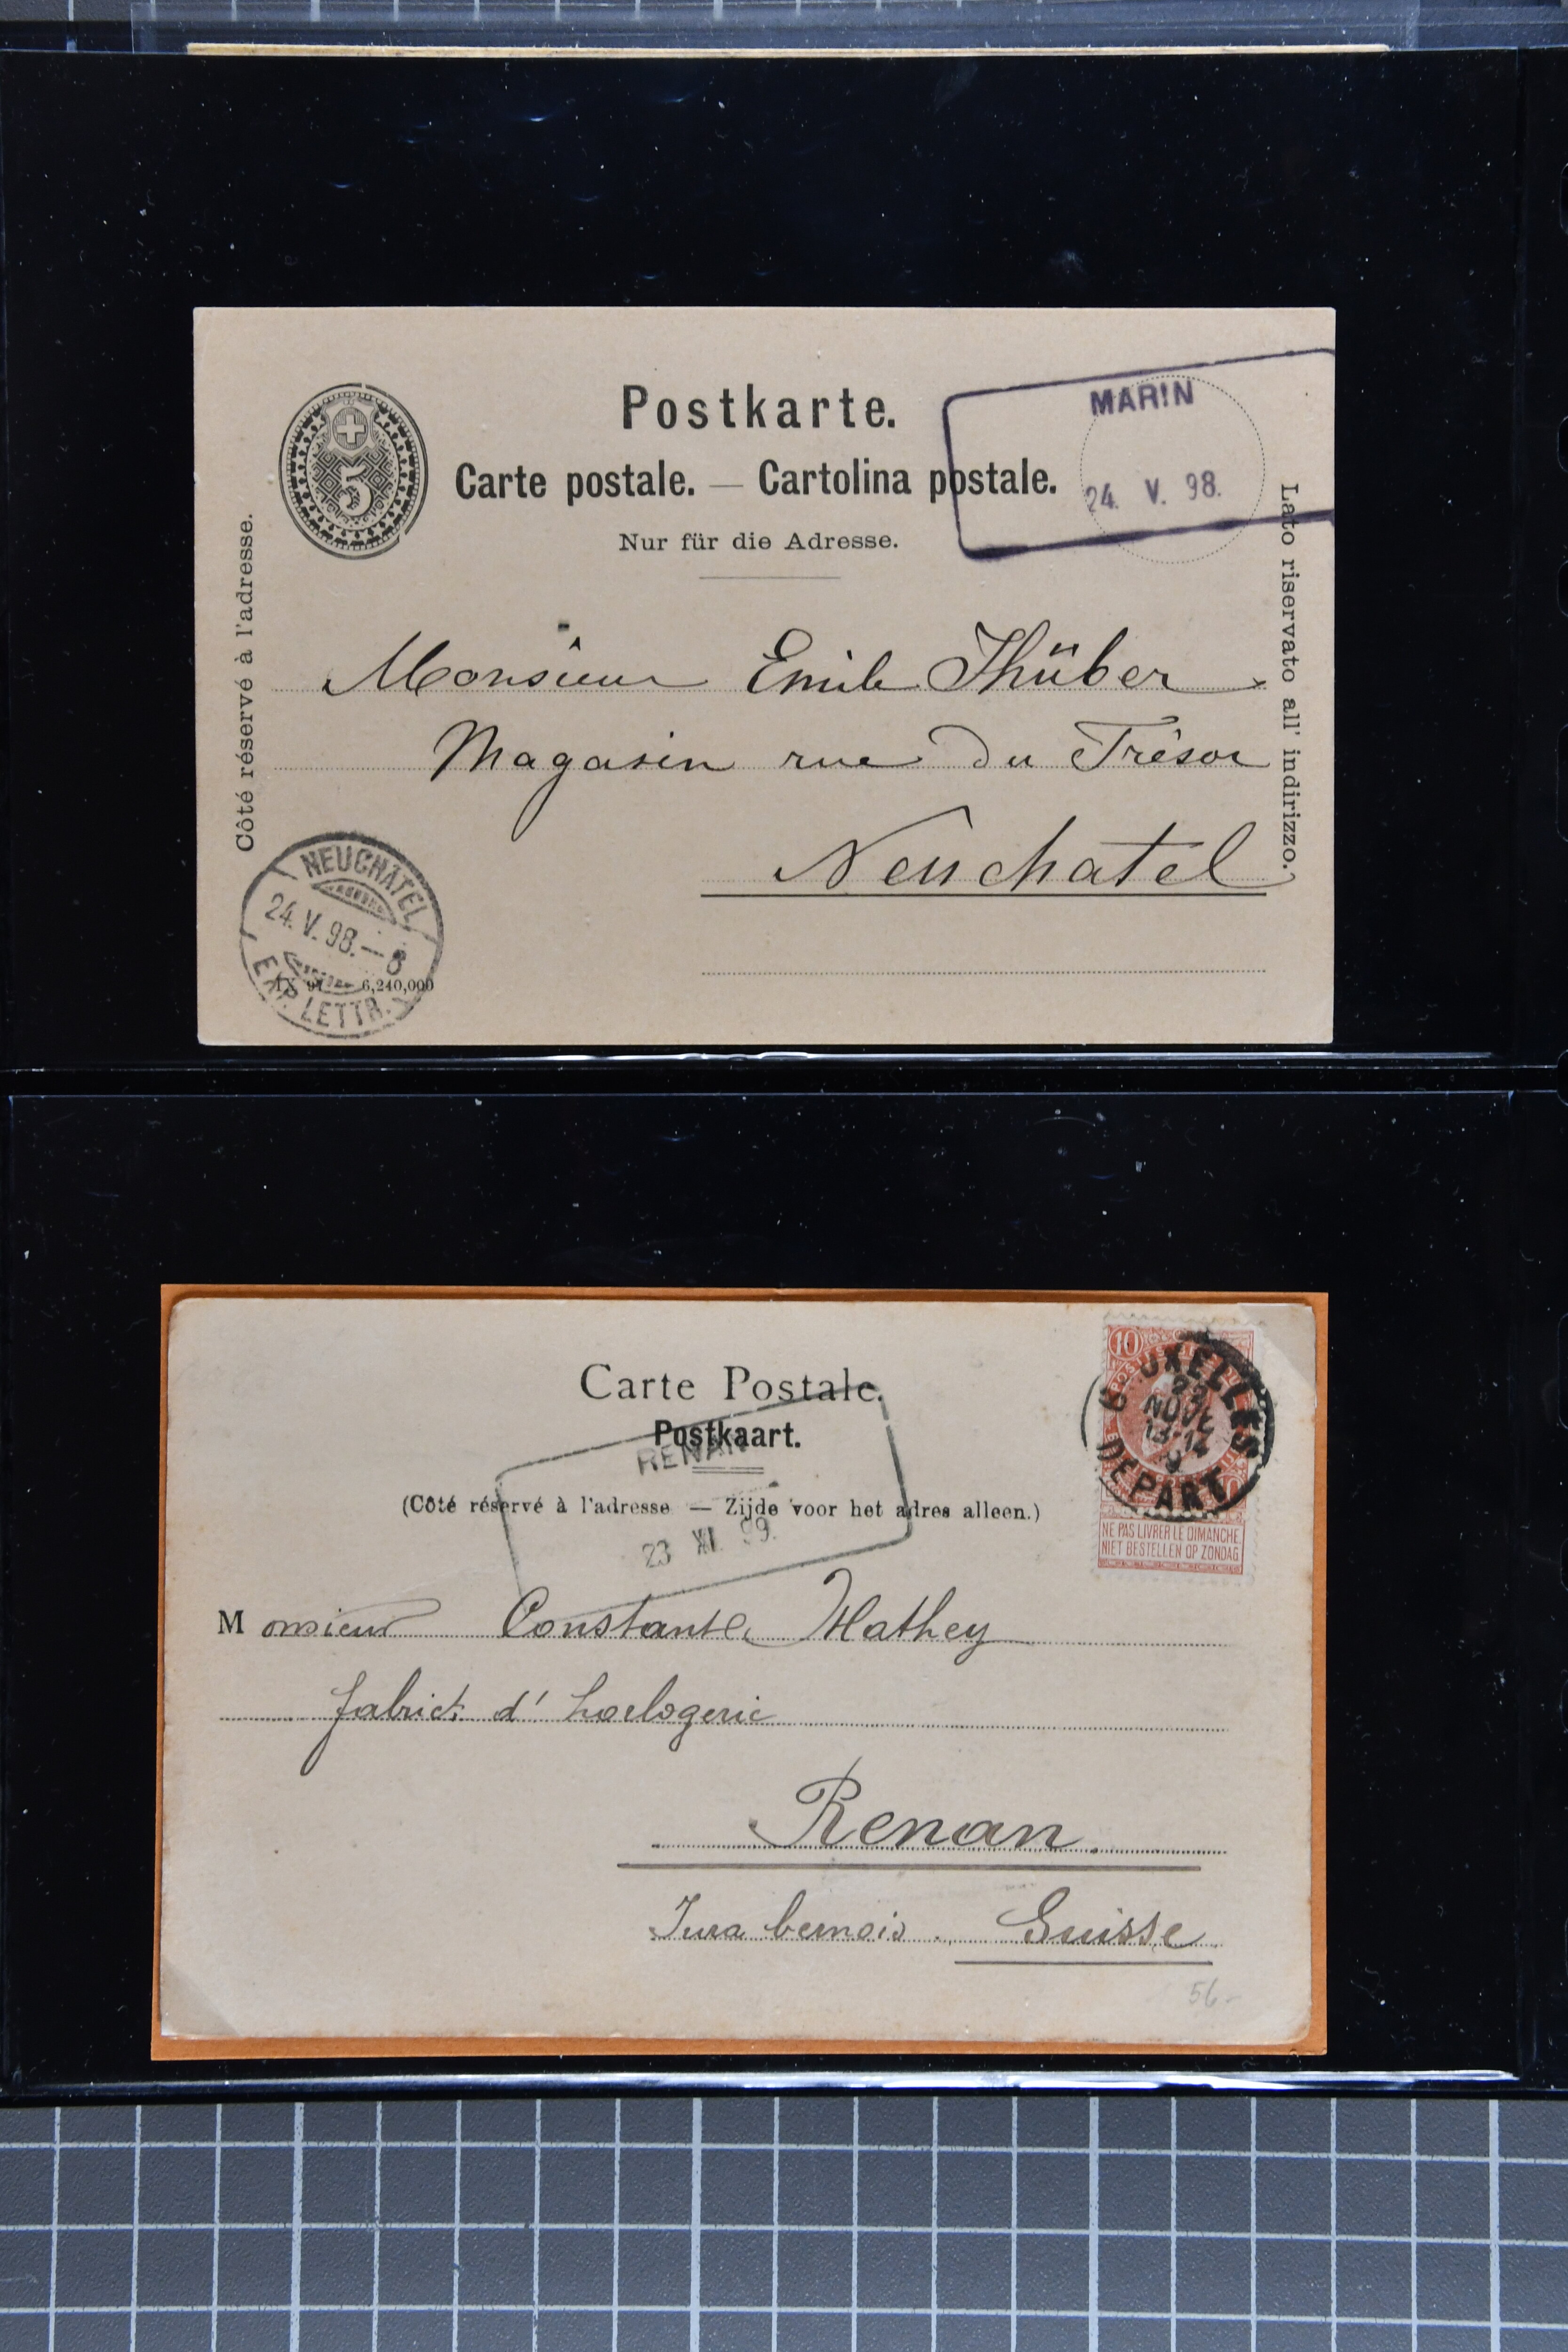 Postkarte.
Carte postale. — Cartolina postale.
Nur für die Adresse.
Côté réservé à l'adresse.
Lato riservato all' indirizzo.
5
MARIN
24. V. 98.
Monsieur Emile Thüber
Magasin rue du Trésor
Neuchatel
NEUCHÂTEL
24. V. 98.—8
EXP. LETTR.
IX 97 6,240,000
Carte Postale.
Postkaart.
(Côté réservé à l'adresse — Zijde voor het adres alleen.)
RENAN
23 XI. 99.
10
BRUXELLES
22
NOVE
13-14
DEPART
NE PAS LIVRER LE DIMANCHE
NIET BESTELLEN OP ZONDAG
Monsieur Constant Mathey
fabrict. d'horlogerie
Renan.
Jura bernois. Suisse
56-